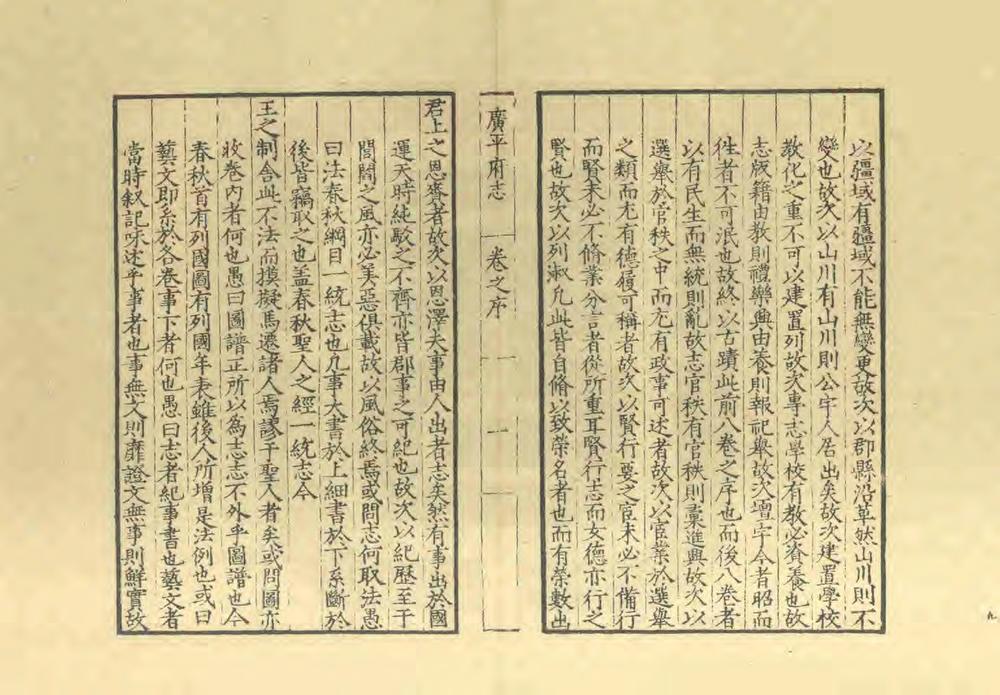 以疆域有疆域不能無變更故次以郡縣沿革然山川則不
變也故次以山川有山川則公宇人居出矣故次建置學校
教化之重不可以建置列故次專志學校有教必脊養也故
志版籍由教則禮樂興由養則報祀舉故次壇宇今者昭而
徃者不可泯也故終以古蹟此前八卷之序也而後八卷者
以有民生而無統則亂故志官秩有官秩則彙進興故次以
選舉於官秩之中而尤有政事可述者故次以宦業於選舉
之類而尤有德履可稱者故次以賢行要之宦未必不備行
而賢未必不脩業分言者從所重耳賢行志而女德亦行之
賢也故次以列淑凡此皆自脩以致榮名者也而有榮數出
廣平府志 卷之序 一
君上之恩賚者故次以恩澤夫事由人出者志矣然有事出於國
運天時純駁之不齊亦皆郡事之可紀也故次以紀歷至于
閭閻之風亦必美惡俱載故以風俗終焉或問志何取法愚
曰法春秋綱目一統志也凡事大書於上細書於下系斷於
後皆竊取之也盖春秋聖人之經一統志今
王之制舍此不法而摸擬馬遷諸人焉謬于聖人者矣或問圖亦
收卷內者何也愚曰圖譜正所以為志志不外乎圖譜也今
春秋首有列國圖有列國年表雖後人所增是法例也或曰
藝文即系於各卷事下者何也愚曰志者紀事書也藝文者
當時叙記咏述乎事者也事無文則靡證文無事則鮮實故